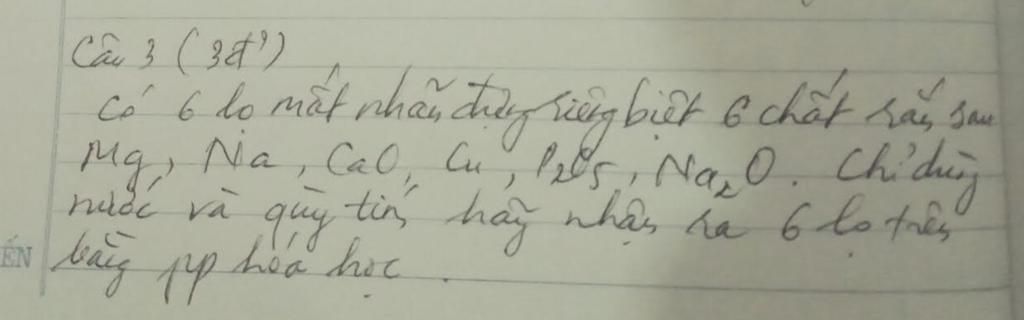 Câu 3 (3đ)
Có 6 lọ mất nhãn đựng riêng biệt 6 chất rắn sau
Mg, Na, CaO, Cu, P₂O₅, Na₂O. Chỉ dùng
nước và quỳ tím, hãy nhận ra 6 lọ trên
ẾN bằng pp hóa học.